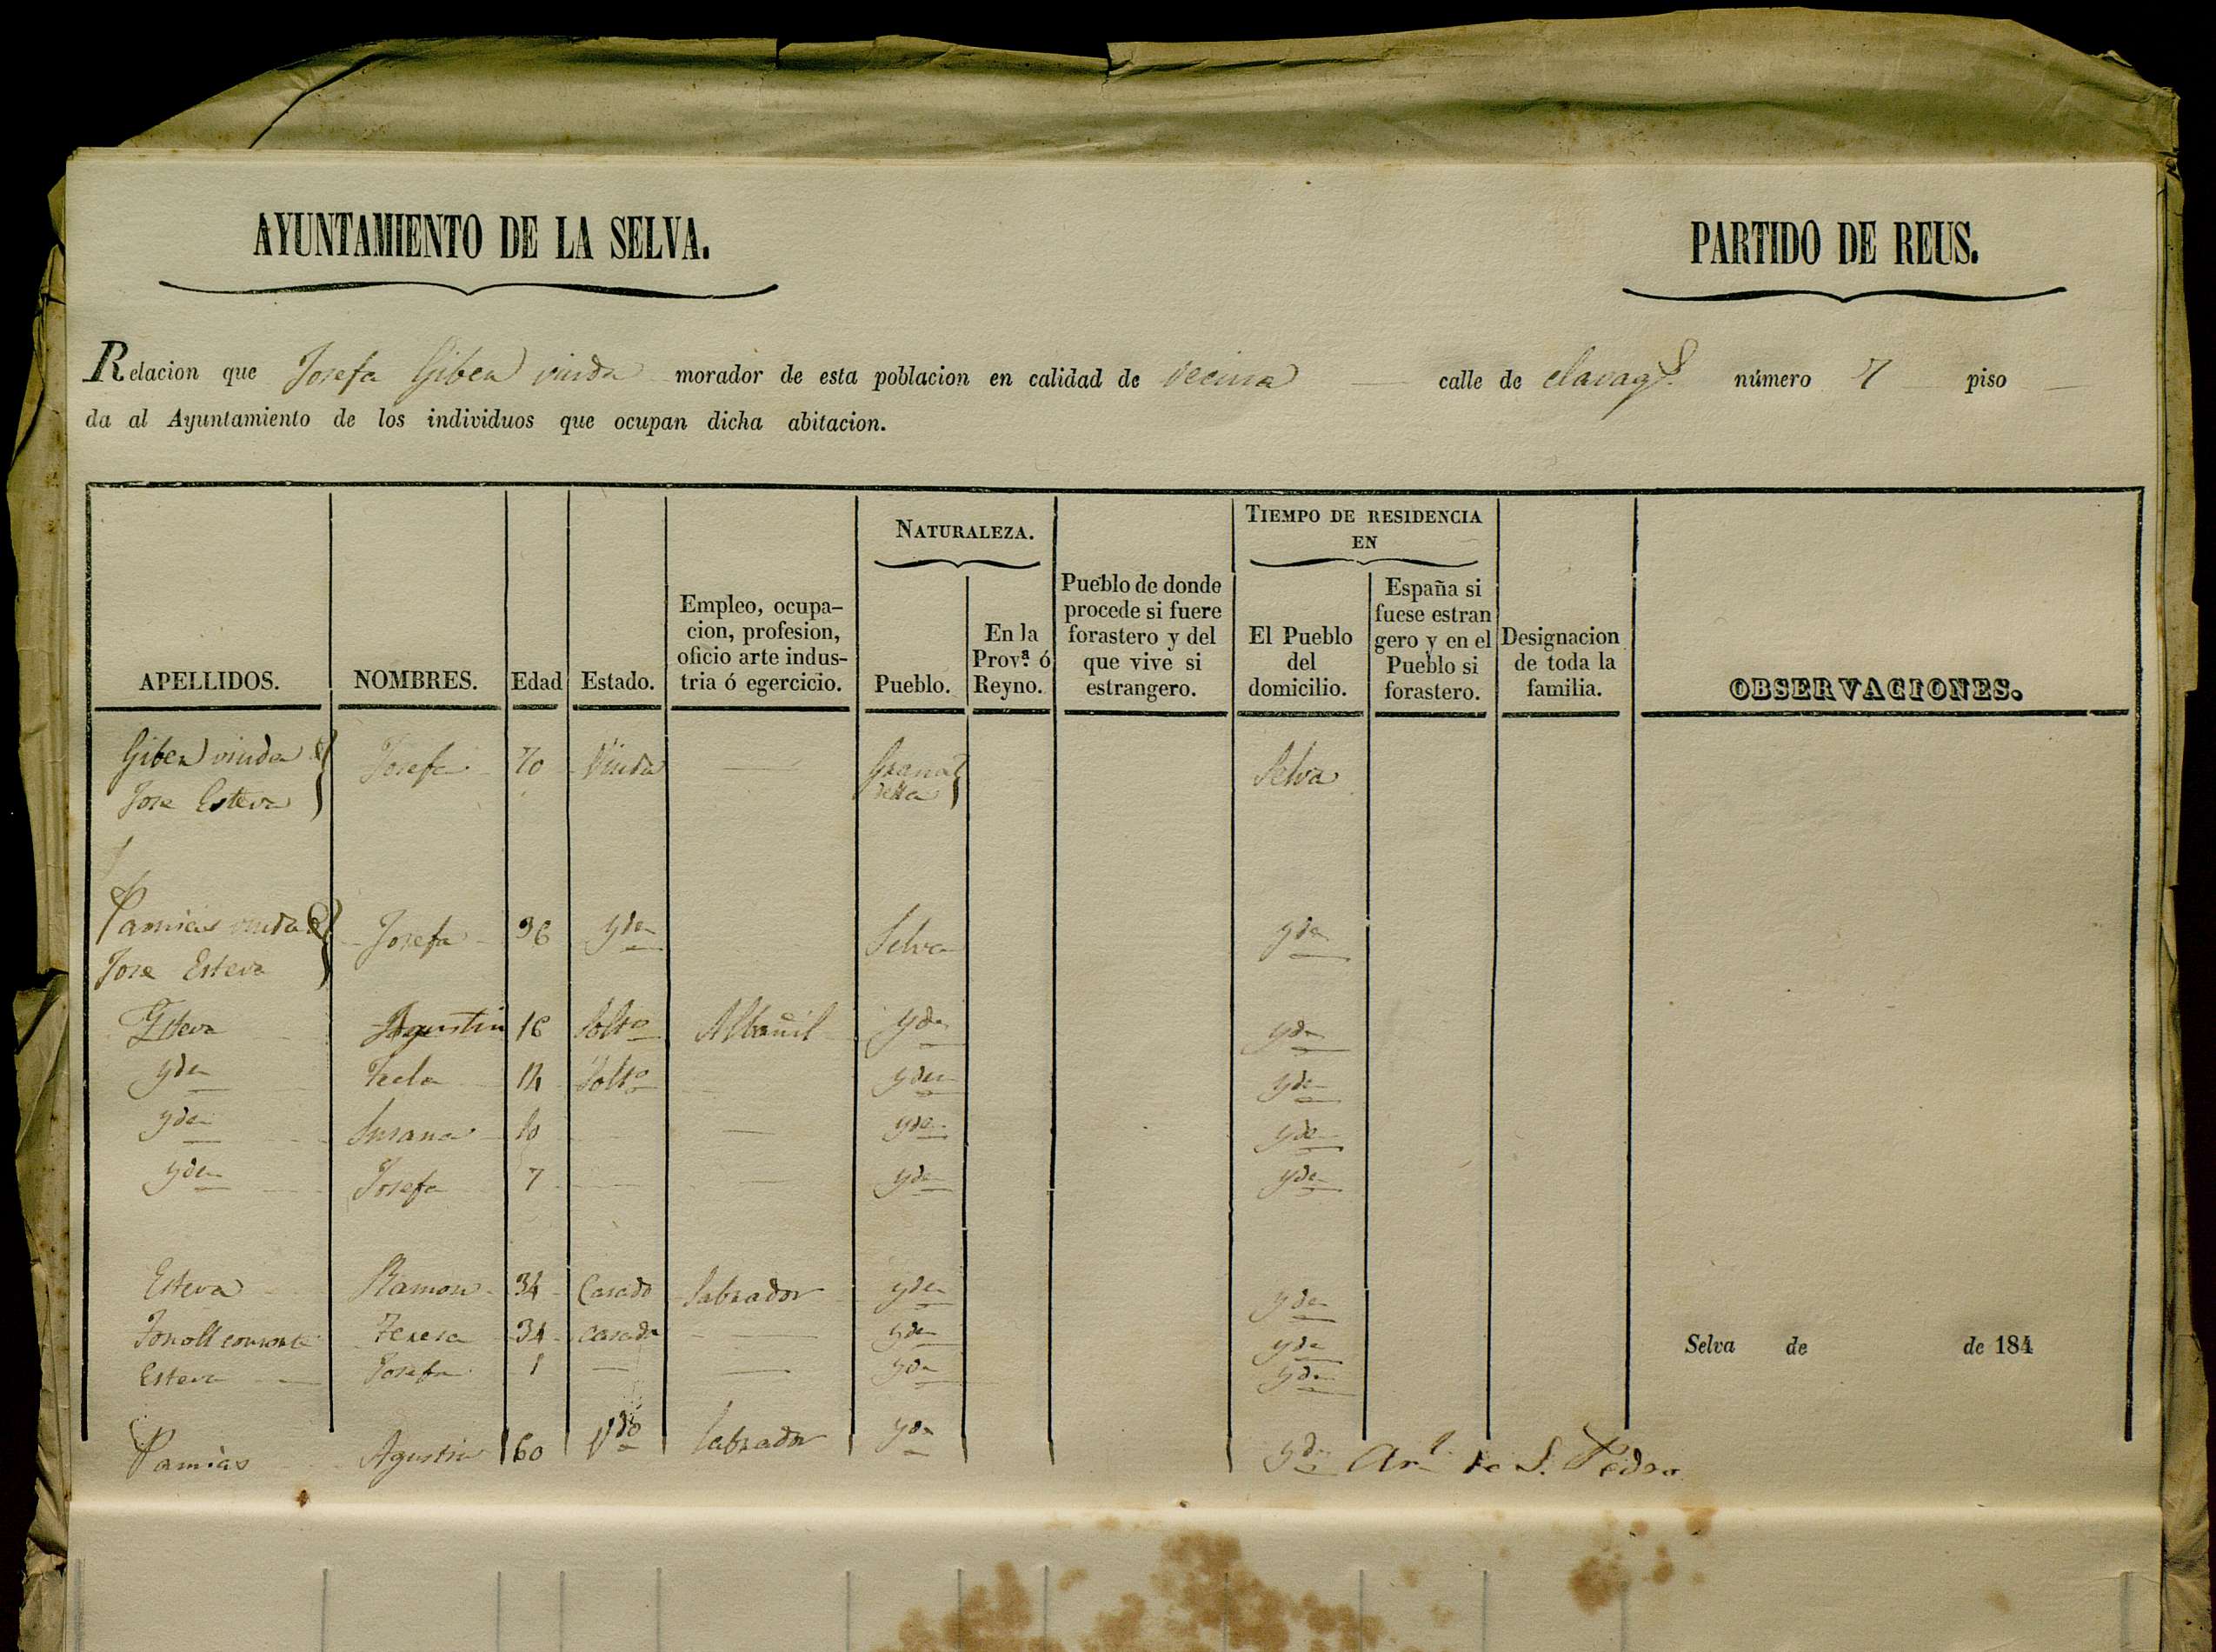 AYUNTAMIENTO DE LA SELVA.
PARTIDO DE REUS.
Relacion que Josefa Giben viuda morador de esta poblacion en calidad de vecina calle de número 7 piso —
da al Ayuntamiento de los individuos que ocupan dicha abitacion.
APELLIDOS.
NOMBRES.
Edad
Estado.
Empleo, ocupa-
cion, profesion,
oficio arte indus-
tria ó egercicio.
NATURALEZA.
Pueblo.
En la
Provª. ó
Reyno.
Pueblo de donde
procede si fuere
forastero y del
que vive si
estrangero.
TIEMPO DE RESIDENCIA
EN
El Pueblo
del
domicilio.
España si
fuese estran
gero y en el
Pueblo si
forastero.
Designacion
de toda la
familia.
OBSERVACIONES.
Giben viuda Josefa 70 Viuda — Grana Selva
Jose Esteva della
Pamias viuda Josefa 36 yden Selva yden
Jose Esteva
Esteva Agustin 16 Solto Albañil yden yden
yden Tecla 14 Solta yden yden
yden Susana 10 — yden yden
yden Josefa 7 — yden yden
Esteva Ramon 34 Casado labrador yden yden
Fonoll consorte Teresa 34 casada — yden yden
Esteva Josefa 1 — — yden yden
Selva de de 184
Pamias Agustin 60 Vdo labrador yden yden Arl. de S. Pedro